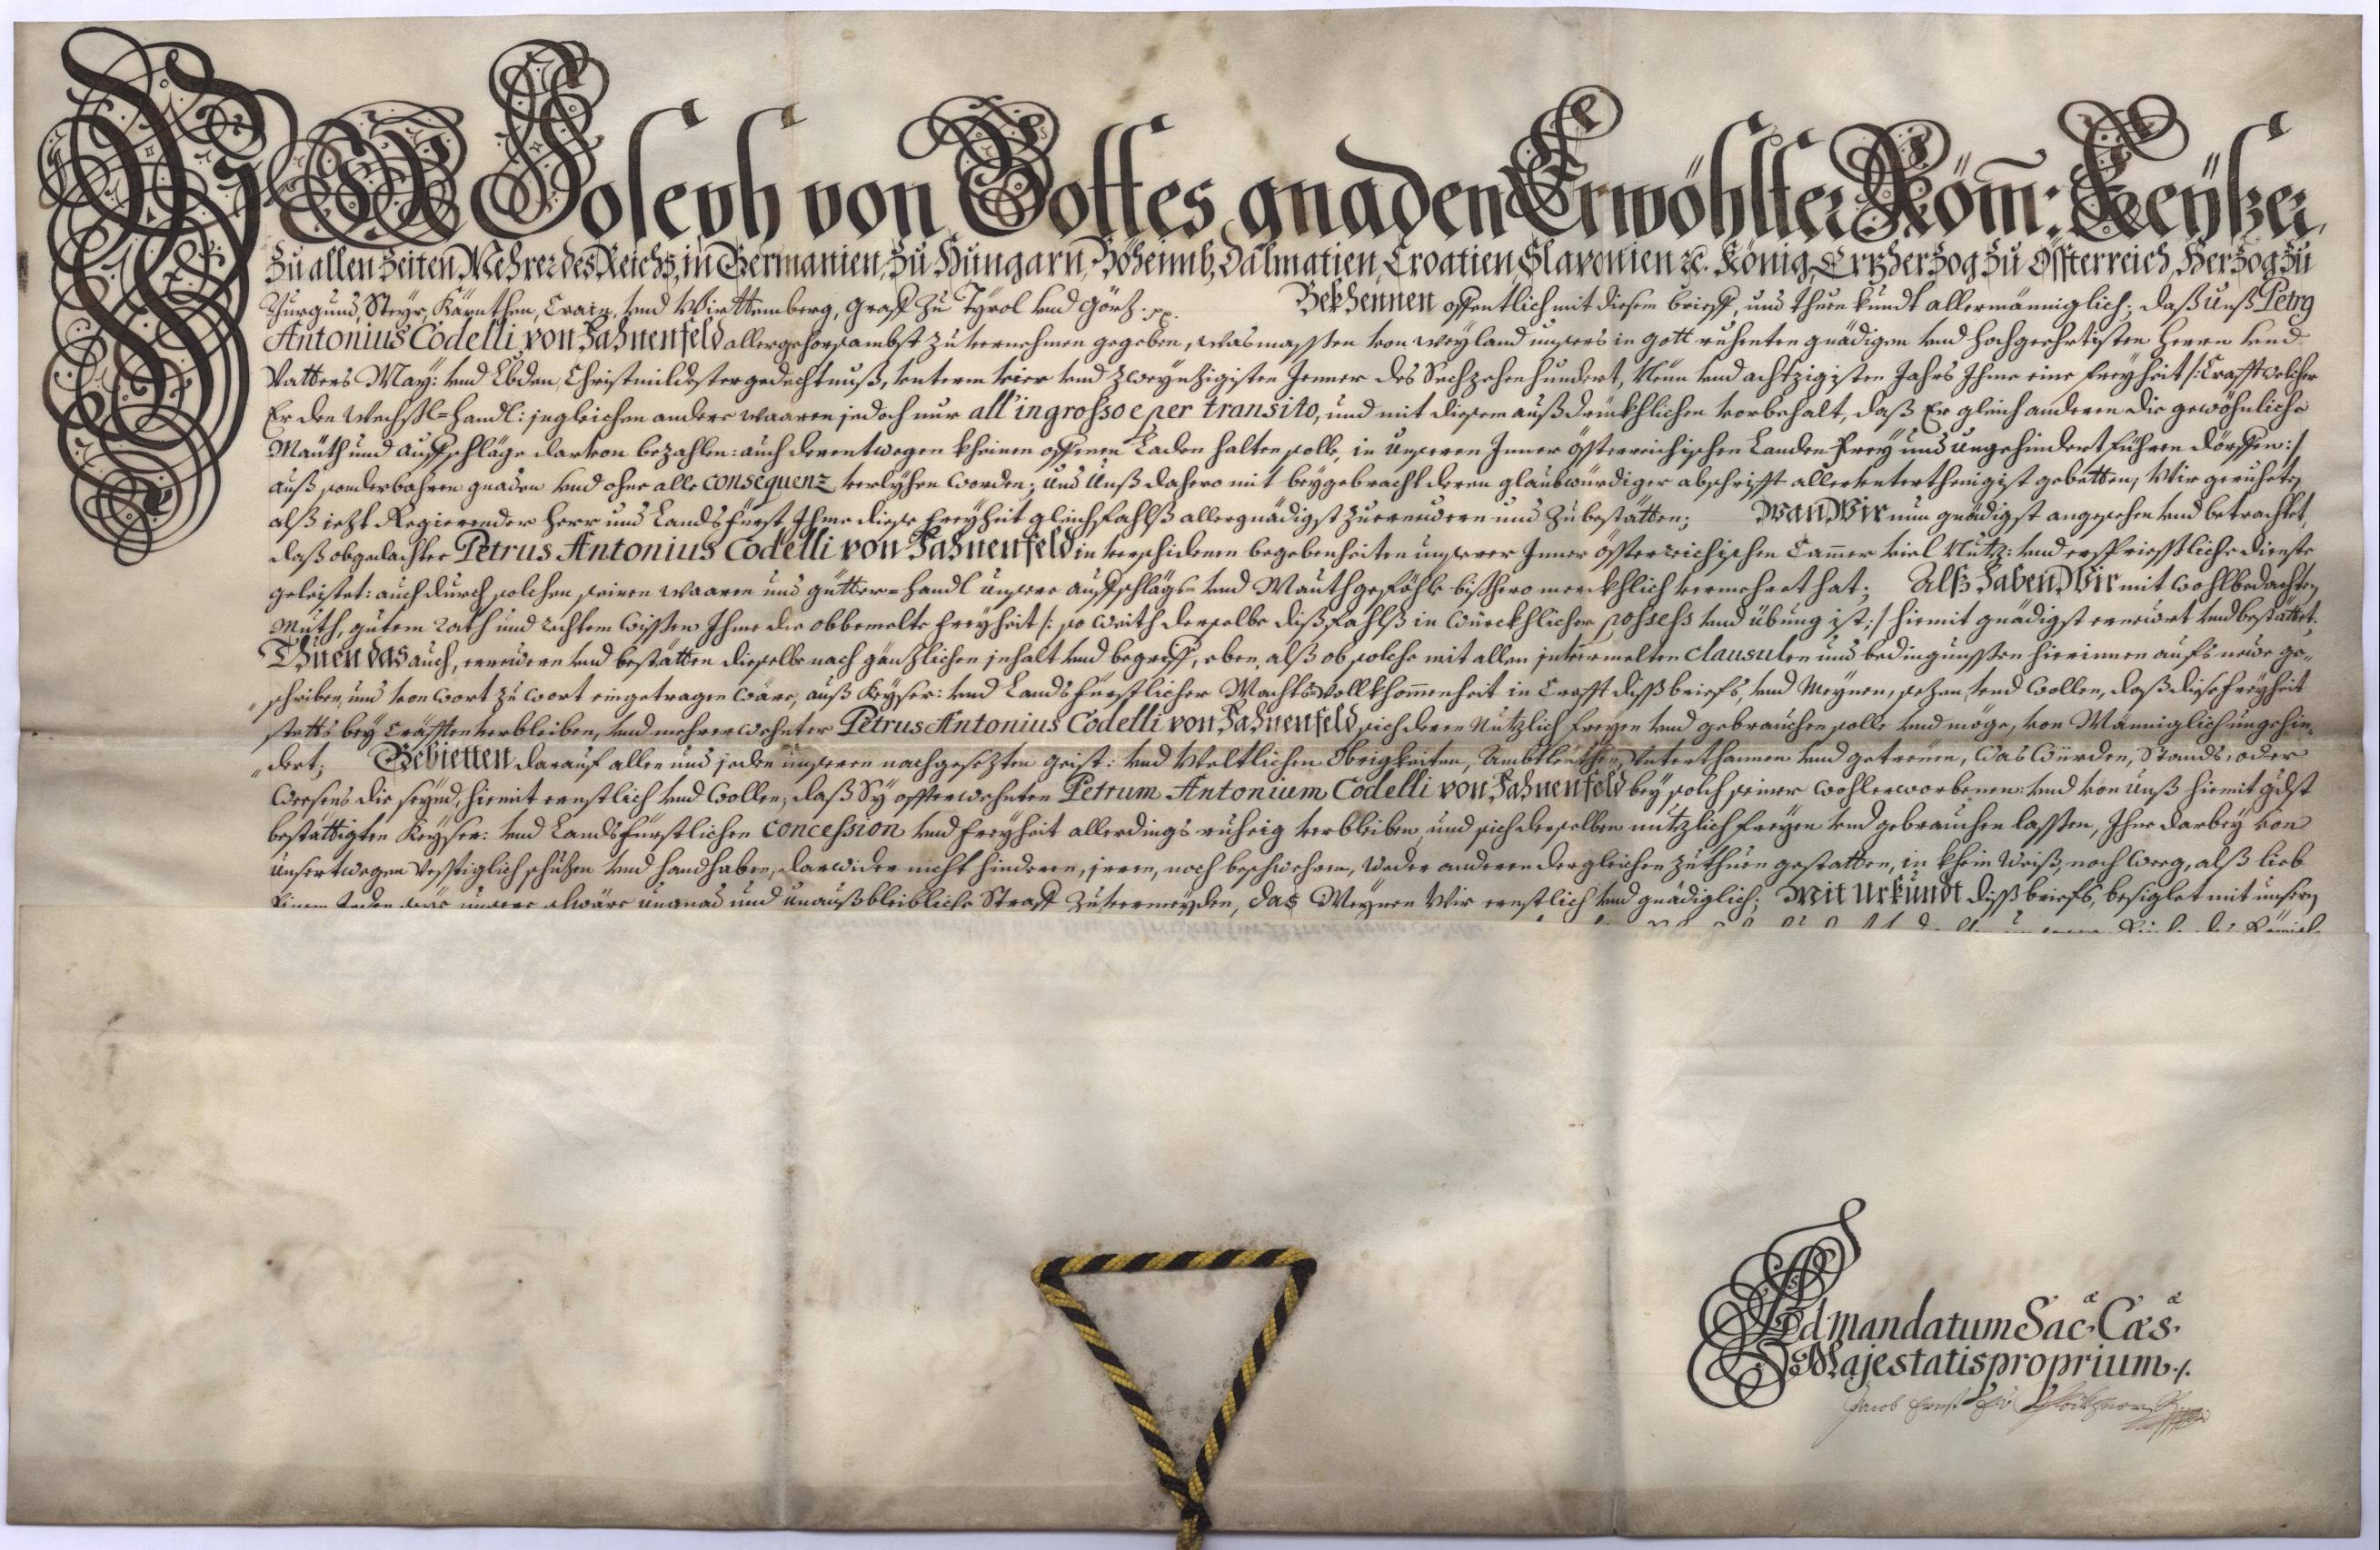 Wir Joseph von Gottes gnaden Erwöhlter Röm: Keyßer,
Zu allen Zeiten Mehrer des Reichs, in Germanien, Zu Hungarn, Böheimb, Dalmatien, Croatien, Slavonien ꝛc. König, Ertzhertzog zu Össterreich, Hertzog Zu
Burgund, Steyr, Kärnthen, Crain, vnd Wirttemberg, Graff Zu Tyrol vnd Görtz. pp. Bekhennen offentlich mit diesem brieff, und thuen kundt allermänniglich; daß Unß Petrg
Antonius Codelli von Fahnenfeld allergehorsambst zu vernehmen gegeben, wasmassen von weyland unsers in gott ruhenten gnädigen vnd hochgeehrtisten Herrn vnd
Vatters May: vnd Lbden, Christmildester gedechtnuß, vnterm vier vnd zweyntzigisten Jenner des Sechzehenhundert, Neün vnd achtzigisten Jahrs Ihme eine freyheit /: Crafft welcher
Er den Wechsl=handl: ingleichen andere waaren jedoch nur all'ingrosso e per transito, und mit diesem außdrückhlichen vorbehalt, daß Er gleich anderen die gewöhnliche
Mäuth und aufschläge darvon bezahlen: auch derentwegen kheinen offenen Laden halten solle, in unseren Inner össterreichischen Landen frey und ungehindert führen dörffen: /
auß sonderbahren gnaden vnd ohne alle consequenz verlyhen worden; und unß dahero mit beygebracht deren glaubwürdiger abschrifft allervnterthenigist gebetten, Wir geruheten
alß jetzt Regierender Herr und Landsfürst, Ihme diese freyheit gleichfahlß allergnädigst zuerneüern und zubestätten; Wan Wir nun gnädigst angesehen vnd betrachtet,
daß obgedachter Petrus Antonius Codelli von Fahnenfeld in verschidenen begebenheiten unserer Inner össterreichischen Cammer viel Nutz: vnd ersprießliche dienste
geleistet: auch durch solchen seinen waaren und gütter=handl unsere aufschlägs= vnd Mauthgefähle bißhero merckhlich vermehret hat; Alß haben Wir mit wohlbedachten
Muth, gutem rath und rechtem wissen Ihme die obbemelte freyheit /: so weith derselbe dißfahlß in würckhlicher possess vnd übung ist: / hiemit gnädigst erneüert vnd bestättet.
Thuen das auch, erneüern vnd bestätten dieselbe nach gäntzlichen inhalt vnd begriff, eben, alß ob solche mit allen intermelten clausulen und bedingnussen hierinnen aufs neüe ge=
schriben und von wort zu wort eingetragen wäre, auß Keyser: vnd Landsfürstlicher Machts Vollkhommenheit in Crafft diß briefs, vnd Meynen, setzen, vnd wollen, daß diese freyheit
stetts bey Cräfften verbleiben, vnd mehrerwehnter Petrus Antonius Codelli von Fahnenfeld sich deren Nutzlich freyen vnd gebrauchen solle vnd möge, von Männiglich ungehin=
dert; Gebietten darauf allen und jeden unseren nachgesetzten geist: vnd Weltlichen Obrigkeiten, Ambtleüthen, Vnterthannen vnd getreüen, was Würden, Stands, oder
Weesens die seynd, hiemit ernstlich vnd wollen, daß Sy offterwehnten Petrum Antonium Codelli von Fahnenfeld bey solch seiner wohlerworbenen: vnd von unß hiemit gdst
bestättigten Keyser: vnd Landsfürstlichen concession vnd freyheit allerdings ruheig verbleiben, und sich derselben nützlich freyen vnd gebrauchen lassen, Ihne darbey von
Unsertwegen Vesstiglich schützen vnd handhaben, darwider nicht hinderen, jrren, noch beschwehren, weder anderen dergleichen zuthuen gestatten, in khein Weiß, noch Weeg, alß lieb
Einem Jeden seye unsere schwäre ungnad und unaußbleibliche Straff zuvermeyden, das Meynen Wir ernstlich vnd gnädiglich; Mit Urkundt diß briefs, besiglet mit unsern
Ad mandatum Sac:ᵃᵉ Cæs:ᵃᵉ
Majestatis proprium ./.
Jacob Ernst